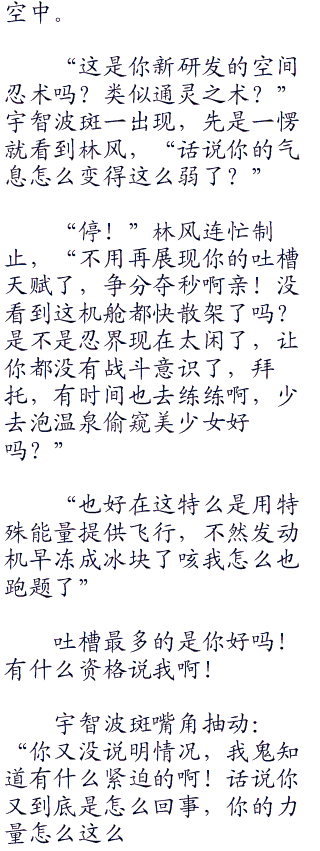 空中。
“这是你新研发的空间
忍术吗？类似通灵之术？”
宇智波斑一出现，先是一愣
就看到林风，“话说你的气
息怎么变得这么弱了？”
“停！”林风连忙制
止，“不用再展现你的吐槽
天赋了，争分夺秒啊亲！没
看到这机舱都快散架了吗？
是不是忍界现在太闲了，让
你都没有战斗意识了，拜
托，有时间也去练练啊，少
去泡温泉偷窥美少女好
吗？”
“也好在这特么是用特
殊能量提供飞行，不然发动
机早冻成冰块了咳我怎么也
跑题了”
吐槽最多的是你好吗！
有什么资格说我啊！
宇智波斑嘴角抽动：
“你又没说明情况，我鬼知
道有什么紧迫的啊！话说你
又到底是怎么回事，你的力
量怎么这么